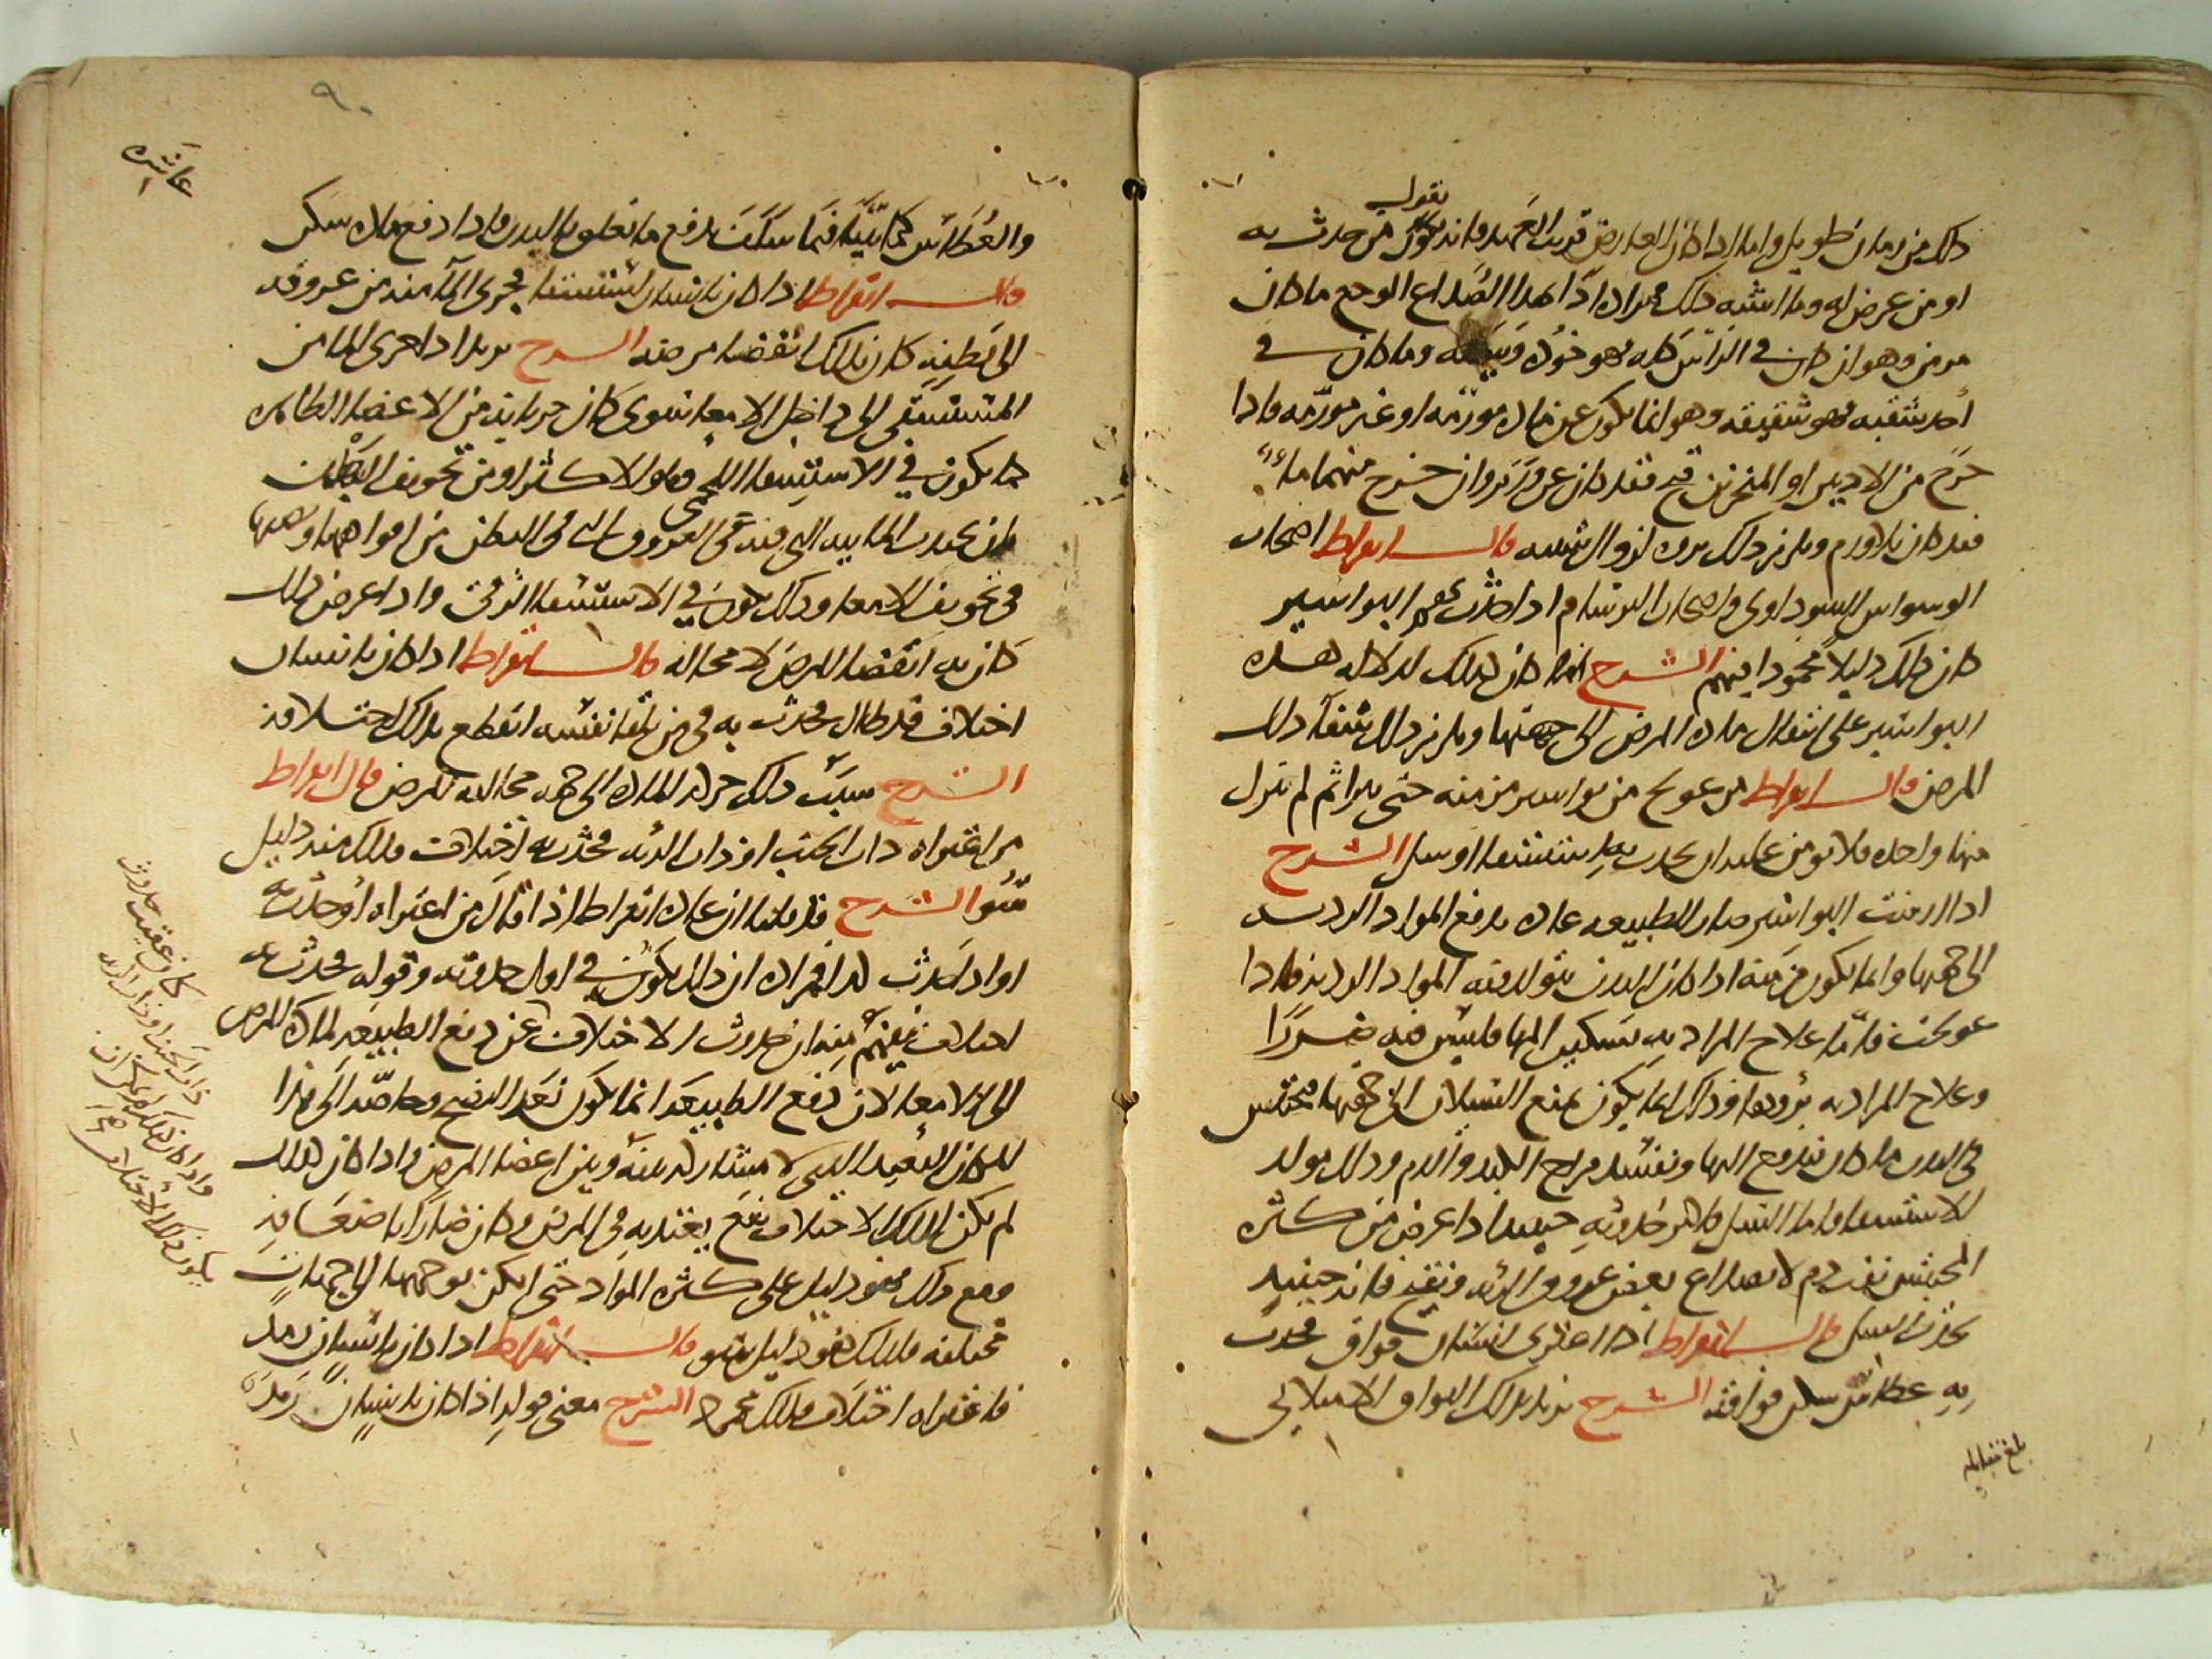 نقول
ذلك من زمان طويل واما اذا كان العارض قريب العهد فانه يقول من حدث به
او من عرض له وما اشبه ذلك فمراده اذًا بهذا الصداع الوجع ما كان
مزمن وهو ان كان في الراس كله فهو خوذه وبيضه وما كان في
احد شقيه فهو شقيقه وهو انما يكون عن ماده مورّمه او غير مورّمه فاذا
خرج من الاذنين او المنخرين قيح فقد كان عن ورم وان خرج منهما ماء
فقد كان بلا ورم ويلزم ذلك برؤه لزوال سببه قال ابقراط اصحاب
الوسواس السوداوي واصحاب البرسام اذا حدثت بهم البواسير
كان ذلك دليلا محمودا فيهم الشرح انما كان كذلك لدلاله هذه
البواسير على انتقال ماده المرض الى جهتها ويلزم ذلك شفآ ذلك
المرض قال ابقراط من عولج من بواسير مزمنه حتى يبرا ثم لم تترك
منها واحده فلا يومن عليه ان يحدث به استسقا او سل الشرح
اذا ازمنت البواسير صار للطبيعه عاده بدفع المواد الرديه
الى جهتها وانما يكون مزمنه اذا كان البدن يتولد فيه المواد الرديه فاذا
عولجت فامّا علاج المراد به تسكين المها فليس فيه ضررًا
وعلاج المراد به برؤها وذاك انما يكون بمنع السيلان الى جهتها فيحتبس
في البدن ما كان يندفع اليها ويفسد مزاج الكبد والدم وذلك مولد
للاستسقا واما السل فانه حدوثه حينيذ اذا عرض من كثره
المحتبس نفث دم لانصداع بعض عروق الريه وتقيح فانه حينيذ
يحدث السل قال ابقراط اذا اعترى انسان فواق فحدث
به عطاس سكن فواقه الشرح يريد بذلك الفواق الامتلائي
بلغ مقابله
٩٠
عاشره
والعُطاس كما بيّنا فيما سلف يدفع ما تعلق بالبدن فاذا دفع مادته سكن
قال ابقراط اذا كان بانسان استسقا فجرى المآ منه من عروقه
الى بطنه كان بذلك انقضا مرضه الشرح يريد اذا جرى الما من
المستسقي الى داخل الامعا سوى كان جريانه من الاعضا الظاهره
كما يكون في الاستسقا اللحمي وهو الاكثر او من تجويف البطن
بان يحدث المائيه التي فيه في العروق التي في البطن من افواهها وتصبها
في تجويف الامعا وذلك يكون في الاستسقا الزقي واذا عرض ذلك
كان به انقضا المرض لا محاله قال ابقراط اذا كان بانسان
اختلاف قد طال فحدث به قي من تلقا نفسه انقطع بذلك اختلافه
الشرح سبب ذلك جذب الماده الى جهه مخالفه للمرض قال ابقراط
من اعتراه ذات الجنب او ذات الريه فحدث به اختلاف فذلك منه دليل
سو الشرح قد قلنا ان عاده ابقراط اذا قال من اعتراه او حدث به
او اذا حدث كذا فمراده ان ذلك يكون في اول حدوثه وقوله فحدث به
اختلاف يفهم منه ان حدوث الاختلاف عن دفع الطبيعه لماده المرض
الى الامعا لان دفع الطبيعه انما يكون بعد النضج وخاصّه الى هذا
المكان البعيد الذي لا مشاركه بينه وبين اعضا المرض واذا كان كذلك
لم يكن لذلك الاختلاف نفع يعتد به في المرض وكان ضارًا باضعافه
ومع ذلك فهو دليل على كثره المواد حتى امكن توجهها الى جهات
مختلفه فلذلك هو دليل سو قال ابقراط اذا كان بانسان رمد
فاعتراه اختلاف فذلك محمود الشرح معنى قوله اذا كان بانسان رمد
كان عقيب حدوث
ذات الجنب او ذات الريه
واذا كان كذلك لم يمكن ان
يكون ذلك الاختلاف